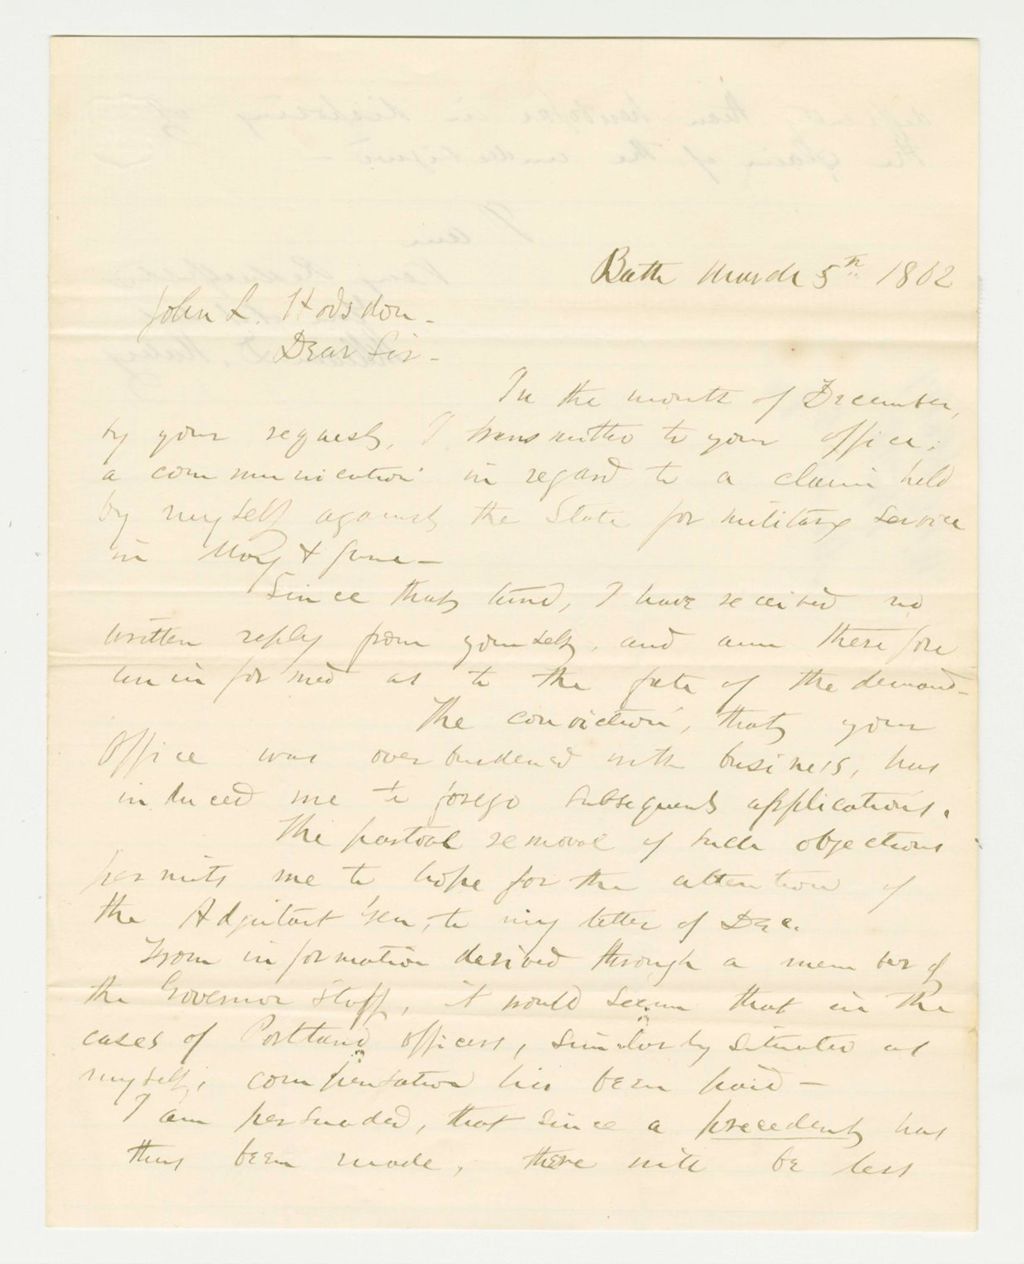 Bath March 5th 1862
John L. Hodsdon -
Dear Sir -
In the month of December,
by your request, I transmitted to your office,
a communication in regard to a claim held
by myself against the State for military service
in May & June -
Since that time, I have received no
written reply from yourself, and am therefore
uninformed as to the fate of the demand -
The conviction, that your
Office was overburdened with business, has
induced me to forego subsequent applications.
The partial removal of such objections
permits me to hope for the attention of
the Adjutant Gen, to my letter of Dec.
From information derived through a member of
the Governor Staff, it would seem that in the
cases of Portland officers, similarly situated as
myself, compensation has been paid -
I am persuaded, that since a precedent has
thus been made, there will be less